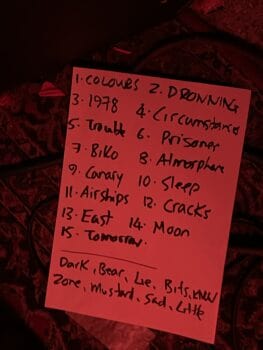 1. COLOURS 2. DRONNING
3. 1978 4. Circumstances
5. Trouble 6. Prisoner
7. BIKO 8. Atmosphere
9. Canary 10. Sleep
11. Airships 12. Cracks
13. East 14. Moon
15. Tomorrow.
Dark, Bear, Lie, Bits,
Zone, Mustard, Sad, Little